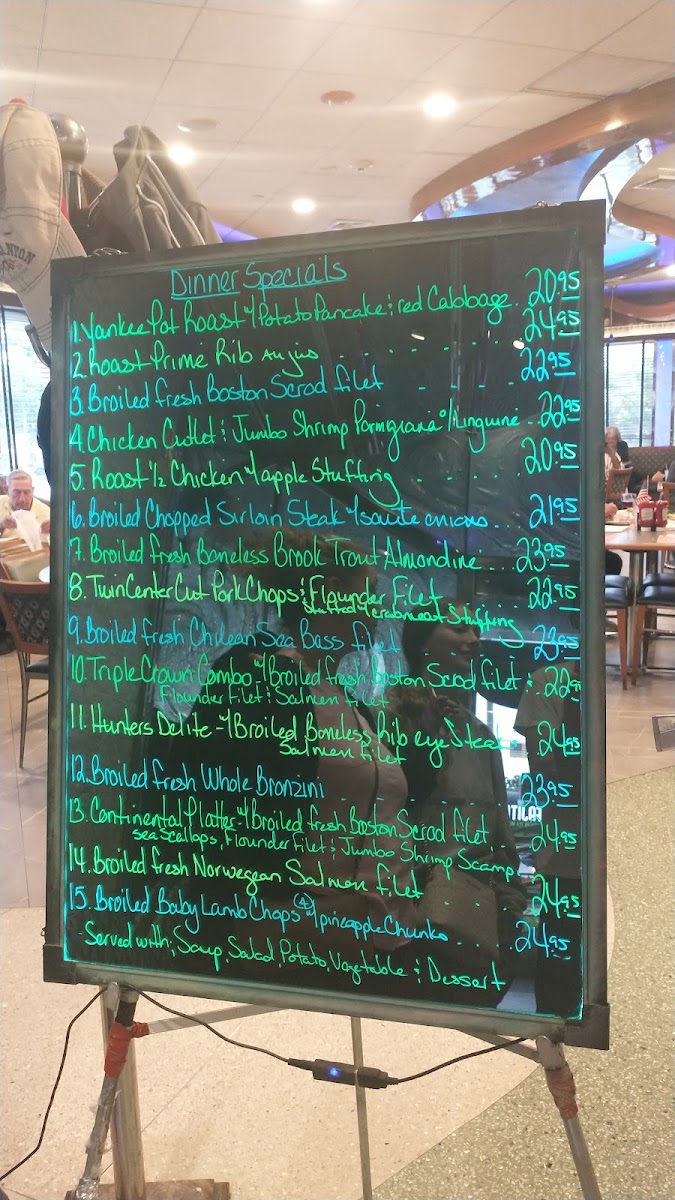 Dinner Specials
1. Yankee Pot Roast w/ Potato Pancake & red Cabbage.. 20.95
2. Roast Prime Rib Au jus . . . . . . 24.95
3. Broiled fresh Boston Scrod filet . . . . 22.95
4. Chicken Cutlet & Jumbo Shrimp Parmigiana o/ Linguine .. 22.95
5. Roast 1/2 Chicken w/ apple Stuffing . . . . . 20.95
6. Broiled Chopped Sirloin Steak w/ saute onions.. . 21.95
7. Broiled fresh Boneless Brook Trout Almondine... 23.95
8. Twin Center Cut Pork Chops & Flounder Filet . . 22.95
Stuffed w/ crabmeat Stuffing
9. Broiled fresh Chilean Sea Bass filet 23.95
10. Triple Crown Combo - w/ Broiled fresh Boston Scrod filet & . 22.95
Flounder Filet & Salmon filet
11. Hunters Delite - w/ Broiled Boneless Rib eye Steak & 24.95
Salmon filet
12. Broiled fresh Whole Bronzini . . . . . . 23.95
13. Continental Platter - w/ Broiled fresh Boston Scrod filet, . . 24.95
Sea Scallops, Flounder Filet & Jumbo Shrimp Scampi
14. Broiled fresh Norwegean Salmon filet . . . . 24.95
15. Broiled Baby Lamb Chops (4) w/ pineapple Chunks . . . . 24.95
- Served with; Soup, Salad, Potato, Vegetable & Dessert